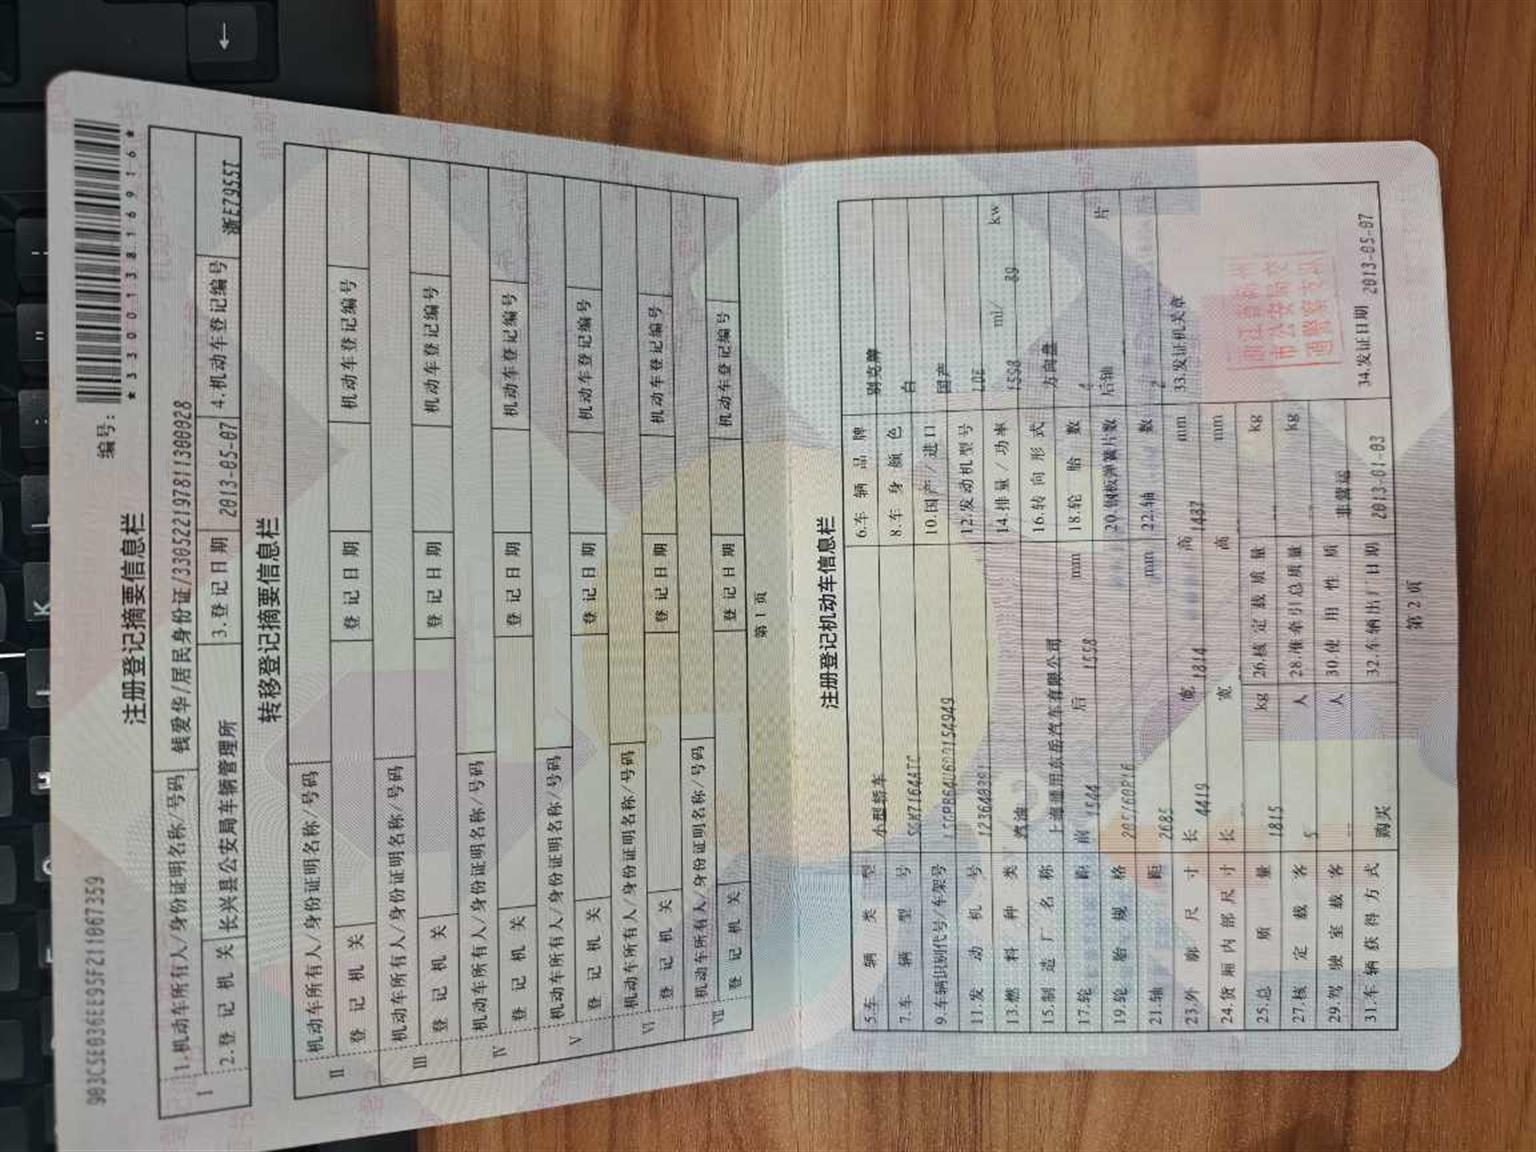 ←
K
903C5E036EE95F21106735​9
编号：
*330013816916*
注册登记摘要信息栏
I
1.机动车所有人/身份证明名称/号码 钱爱华/居民身份证/330522197811300028
2.登记机关 长兴县公安局车辆管理所 3.登记日期 2013-05-07 4.机动车登记编号 浙E7955T
转移登记摘要信息栏
II
机动车所有人/身份证明名称/号码
登记机关 登记日期 机动车登记编号
III
机动车所有人/身份证明名称/号码
登记机关 登记日期 机动车登记编号
IV
机动车所有人/身份证明名称/号码
登记机关 登记日期 机动车登记编号
V
机动车所有人/身份证明名称/号码
登记机关 登记日期 机动车登记编号
VI
机动车所有人/身份证明名称/号码
登记机关 登记日期 机动车登记编号
VII
机动车所有人/身份证明名称/号码
登记机关 登记日期 机动车登记编号
第1页
注册登记机动车信息栏
5.车辆类型 小型轿车 6.车辆品牌 别克牌
7.车辆型号 SGM7164ATC 8.车身颜色 白
9.车辆识别代号/车架号 10.国产/进口 国产
11.发动机号 123640391 12.发动机型号 LDE
13.燃料种类 汽油 14.排量/功率 1598 ml/ 89 kw
15.制造厂名称 上海通用东岳汽车有限公司 16.转向形式 方向盘
17.轮距 前 1544 后 1558 mm 18.轮胎数 4
19.轮胎规格 205/60R16 20.钢板弹簧片数 后轴 片
21.轴距 2685 mm 22.轴数 2
23.外廓尺寸 长 4419 宽 1814 高 1487 mm 33.发证机关章
浙江省湖州
市公安局交
通警察支队
24.货厢内部尺寸 长 宽 高 mm
25.总质量 1815 kg 26.核定载质量 kg
27.核定载客 5 人 28.准牵引总质量 kg
29.驾驶室载客 人 30.使用性质 非营运
31.车辆获得方式 购买 32.车辆出厂日期 2013-01-03 34.发证日期 2013-05-07
第2页